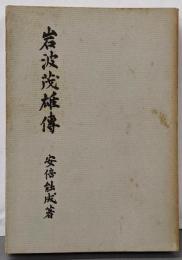 岩波茂雄傳
安倍能成著